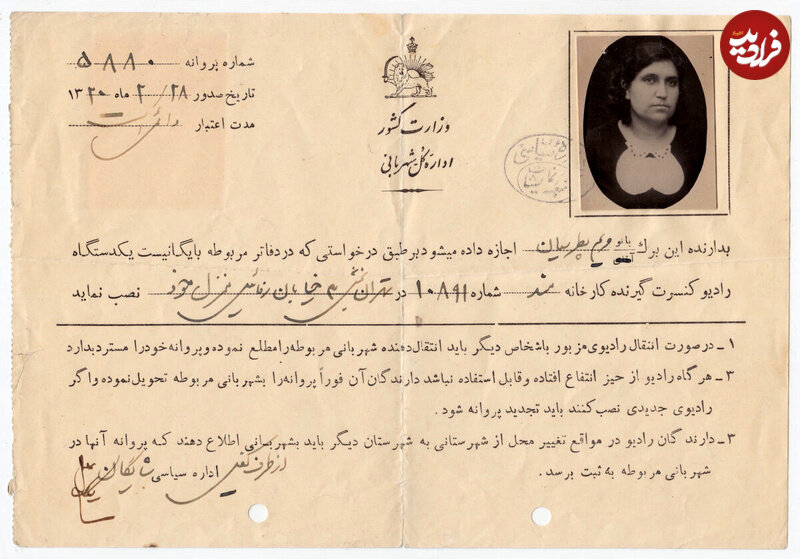 فرادید
اخبار
شماره پروانه ۵۸۸۰
تاریخ صدور ۲۸/ ۲ ماه ۱۳۲۰
مدت اعتبار
وزارت کشور
ادارهٔ کل شهربانی
بدارنده این برگ بانو مریم پطرسیان اجازه داده میشود برطبق درخواستی که در دفاتر مربوطه بایگانیست یکدستگاه
رادیو کنسرت گیرنده کارخانه شماره ۱۰۸۹۱ در تهران بخش ۳ خیابان منزل خود نصب نماید
۱ ـ درصورت انتقال رادیوی مزبور باشخاص دیگر باید انتقال دهنده شهربانی مربوطه را مطلع نموده و پروانه خود را مسترد بدارد
۳ ـ هرگاه رادیو از حیز انتفاع افتاده و قابل استفاده نباشد دارندگان آن فوراً پروانه را بشهربانی مربوطه تحویل نموده و اگر
رادیوی جدیدی نصب کنند باید تجدید پروانه شود .
۳ ـ دارندگان رادیو در مواقع تغییر محل از شهرستانی به شهرستان دیگر باید بشهربانی اطلاع دهند که پروانه آنها در
شهربانی مربوطه به ثبت برسد .
از طرف کفیل اداره سیاسی